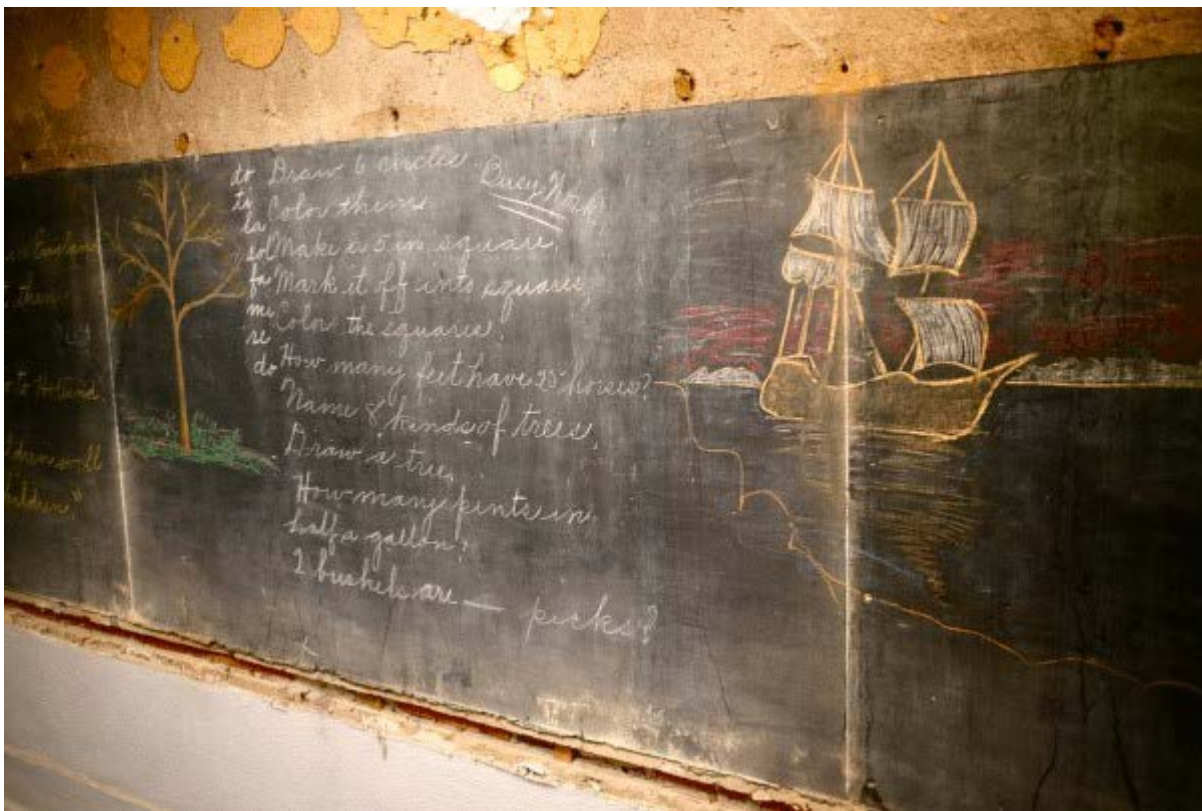 to Holland
children will
children."
do
ti
la
sol
fa
mi
re
do
Busy Work
Draw 6 circles.
Color them.
Make a 5 in square.
Mark it off into squares.
Color the squares.
How many feet have 25 horses?
Name 8 kinds of trees.
Draw a tree.
How many pints in
half a gallon?
2 bushels are — pecks?